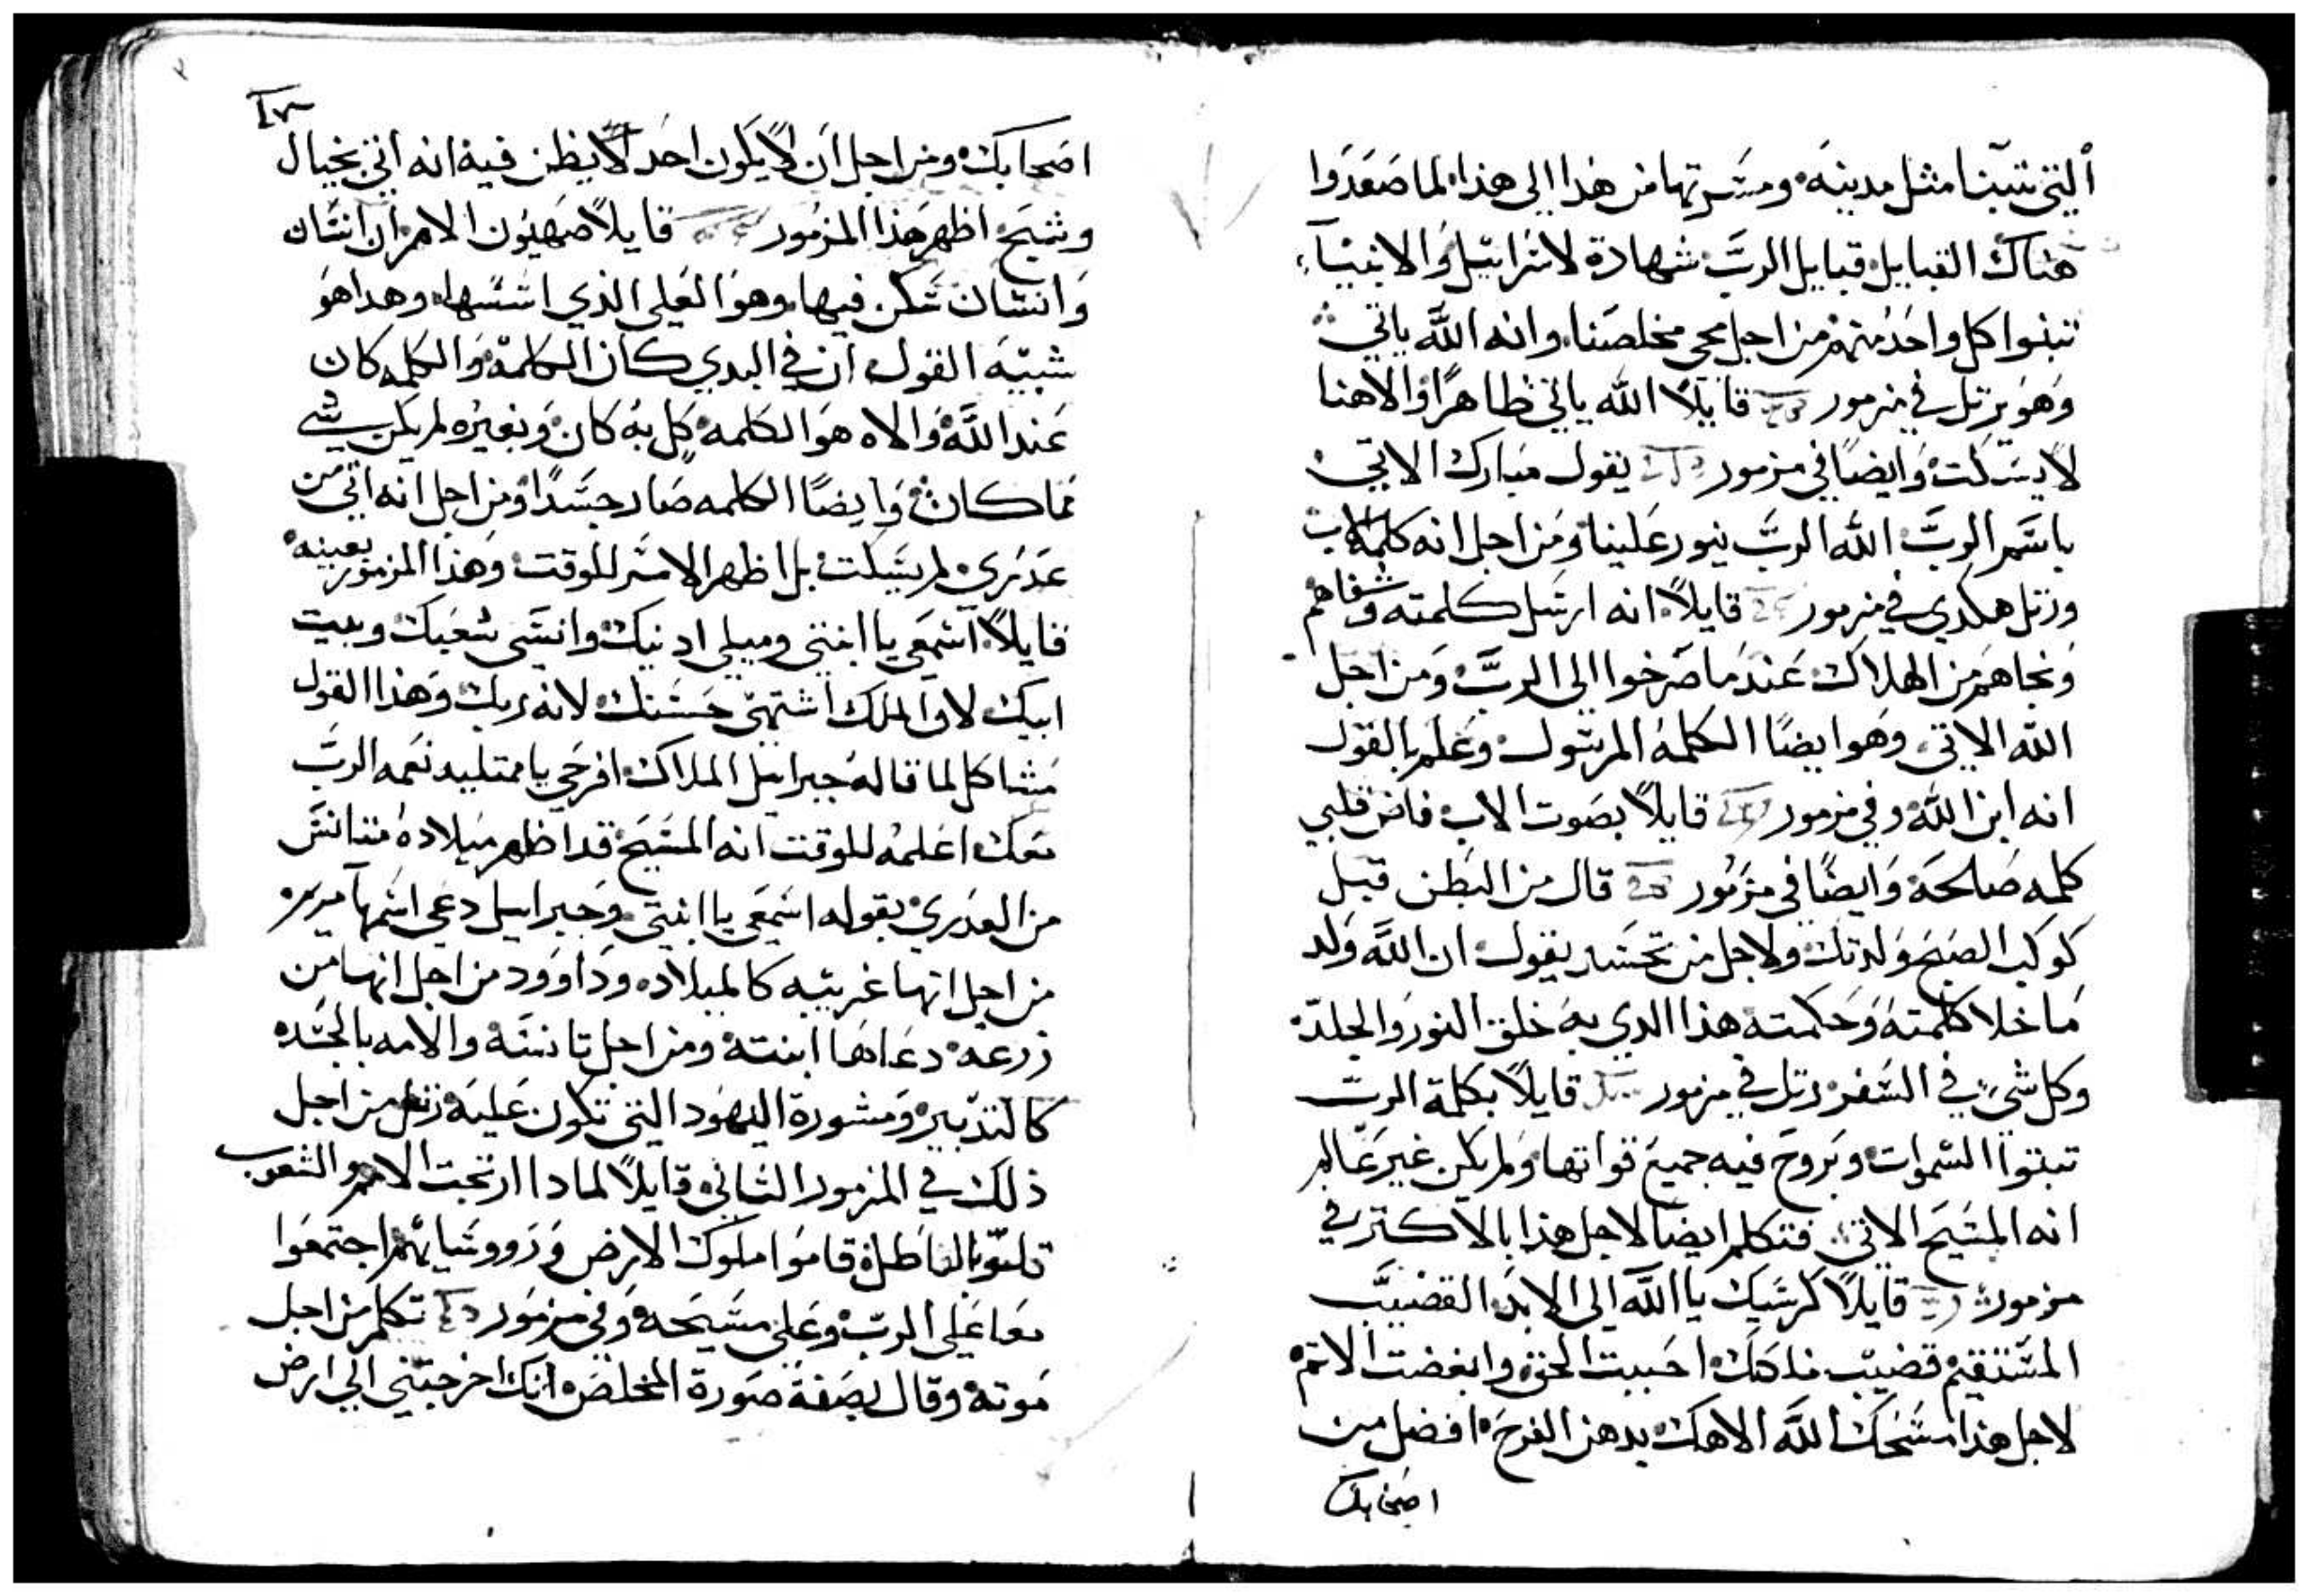 التي تبنا مثل مدينة ومشرتها من هذا الي هذا لما صعدوا
هناك القبايل قبايل الرب شهادة لاسراييل والانبيآء
تبنوا كل واحد منهم من اجل مجي مخلصنا وانه الله ياتي
وهو يرتل في مزمور قايلاً الله ياتي ظاهراً والاهنا
لا يسكت وايضاً في مزمور يقول مبارك الاتي
باسم الرب الله الرب ينور علينا ومن اجل انه كلمة الاب
ورتل هكدي في مزمور قايلاً انه ارسل كلمته وشفاهم
ونجاهم من الهلاك عند ما صرخوا الي الرب ومن اجل
الله الاتي وهو ايضاً الكلمة المرسول وعلم بالقول
انه ابن الله وفي مزمور قايلاً بصوت الاب فاض قلبي
كلمه صالحة وايضاً في مزمور قال من البطن قبل
كوكب الصبح ولدتك ولاجل من تحسد يقول ان الله ولد
ما خلا كلمته وحكمته هذا الدي به خلق النور والجلد
وكل شيء في السفر رتل في مزمور قايلاً بكلمة الرب
تبتوا السموات وبروح فيه جميع قواتها ولم يكن غير عالم
انه المسيح الاتي فتكلم ايضاً لاجل هذا بالاكتر في
مزمور قايلاً كرسيك يا الله الي الابد القضيب
المستقيم قضيب ملكك احببت الحق وابغضت الاتم
لاجل هذا مسحك الله الاهك بدهن الفرح افضل من
اصحابك
اصحابك ومن اجل ان لا يكون احد لا يظن فيه انه اتي بخيال
وشبح اظهر هذا المزمور قايلاً صهيون الام ان انسان
وانسان سكن فيها وهو العلي الذي اسسها وهدا هو
شبيه القول ان في البدي كان الكلمة والكلمه كان
عند الله والاه هو الكلمه كل به كان وبغيره لم يكن شي
مما كان وايضاً الكلمه صار جسداً ومن اجل انه اتي من
عدري لم يسكت بل اظهر الامر للوقت وهذا المزمور بعينه
قايلاً اسمعي يا ابنتي وميلي ادنيك وانسي شعبك وبيت
ابيك لان الملك اشتهي حسنك لانه ربك وهذا القول
مشاكل لما قاله جبراييل الملاك افرحي يا ممتليه نعمه الرب
معك اعلمه للوقت انه المسيح قد اظهر ميلاده متانس
من العدري بقوله اسمعي يا ابنتي وجبراييل دعي اسمها مريم
من اجل انها غريبه كالميلاده وداوود من اجل انها من
زرعه دعاها ابنته ومن اجل تانسه والامه بالجسده
كالتدبير ومشورة اليهود التي تكون عليه رتل من اجل
ذلك في المزمور الثاني قايلاً لمادا ارتجت الامم والشعوب
تلتوا بالباطل قاموا ملوك الارض ورووسايهم اجتمعوا
معا علي الرب وعلي مسيحه وفي مزمور تكلم من اجل
موته وقال بصفة صورة المخلص انك اخرجتني الي ارض